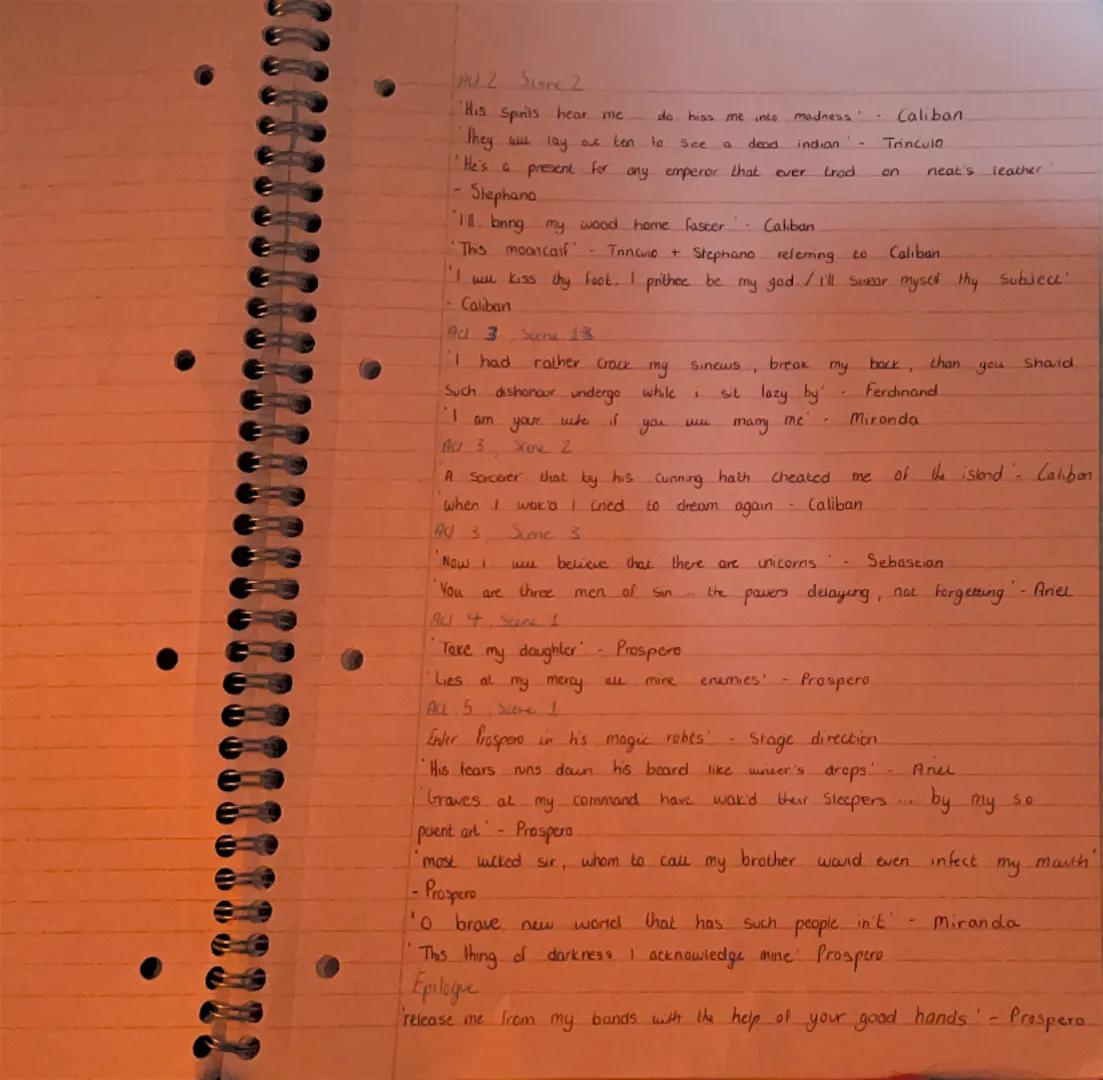 Act 2, Scene 2
'His spirits hear me ... do hiss me into madness' - Caliban
'They will lay out ten to see a dead indian' - Trinculo
'He's a present for any emperor that ever trod on neat's leather'
- Stephano
'I'll bring my wood home faster' - Caliban
'This mooncalf' - Trinculo + Stephano referring to Caliban
'I will kiss thy foot. I prithee be my god / i'll swear myself thy subject'
- Caliban
Act 3, Scene 1
'I had rather crack my sinews, break my back, than you should
such dishonour undergo while i sit lazy by' - Ferdinand
'I am your wife if you will marry me' - Miranda
Act 3, Scene 2
'A sorcerer that by his cunning hath cheated me of the island' - Caliban
'when I wak'd I cried to dream again - Caliban
Act 3, Scene 3
'Now i will believe that there are unicorns' - Sebastian
'You are three men of sin ... the powers delaying, not forgetting' - Ariel
Act 4, Scene 1
'Take my daughter' - Prospero
'Lies at my mercy all mine enemies' - Prospero
Act 5, Scene 1
Enter Prospero in his magic robes' - Stage direction
'His tears runs down his beard like winter's drops' - Ariel
'Graves at my command have wak'd their sleepers ... by my so
potent art' - Prospero
'most wicked sir, whom to call my brother would even infect my mouth'
- Prospero
'O brave new world that has such people in't' - Miranda
'This thing of darkness I acknowledge mine' Prospero
Epilogue
'release me from my bands with the help of your good hands' - Prospero